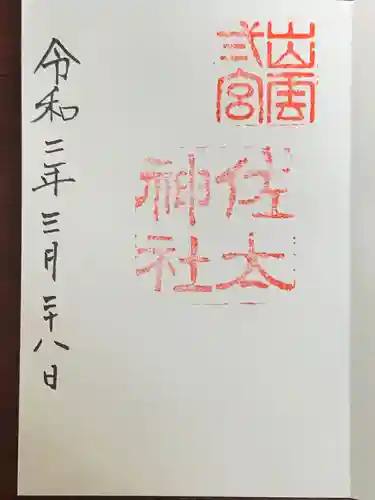 出雲
弐宮
佐太
神社
令和二年三月二十八日